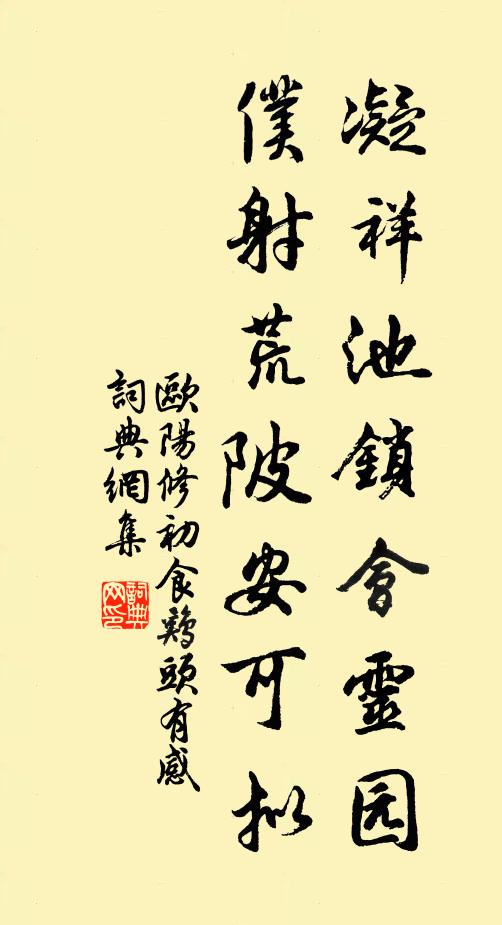 凝祥池鎖會靈园
僕射荒陂安可拟
歐陽修初食鷄頭有感
詞典網集
詞典网印